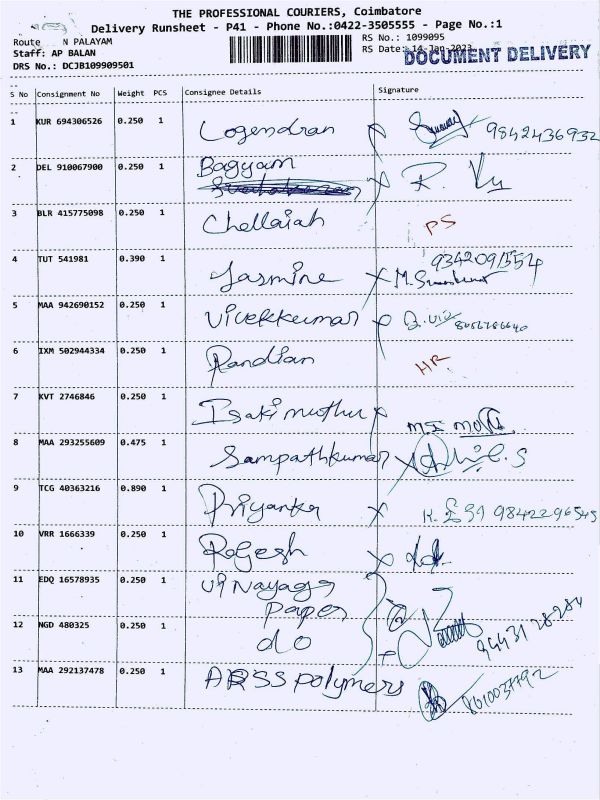 THE PROFESSIONAL COURIERS, Coimbatore
Delivery Runsheet - P41 - Phone No.:0422-3505555 - Page No.:1
Route N PALAYAM
Staff: AP BALAN
DRS No.: DCJB109909501
RS No.: 1099095
RS Date: 14-Jan-2023
DOCUMENT DELIVERY
S No Consignment No Weight PCS Consignee Details Signature
1 KUR 694306526 0.250 1 Logendran 9842436932
2 DEL 910067900 0.250 1 Bagyam
3 BLR 415775098 0.250 1 Chellaiah PS
4 TUT 541981 0.390 1 Jasmine 9342091554
5 MAA 942690152 0.250 1 Vivekkumar
6 IXM 502944334 0.250 1 Pandian HR
7 KVT 2746846 0.250 1 Isakimuthu
8 MAA 293255609 0.475 1 Sampathkumar
9 TCG 40363216 0.890 1 Priyanka 9842296545
10 VRR 1666339 0.250 1 Rajesh
11 EDQ 16578935 0.250 1 Vinayaga
Paper
12 NGD 480325 0.250 1 do 9443128284
13 MAA 292137478 0.250 1 ARSS polymers 8610037792